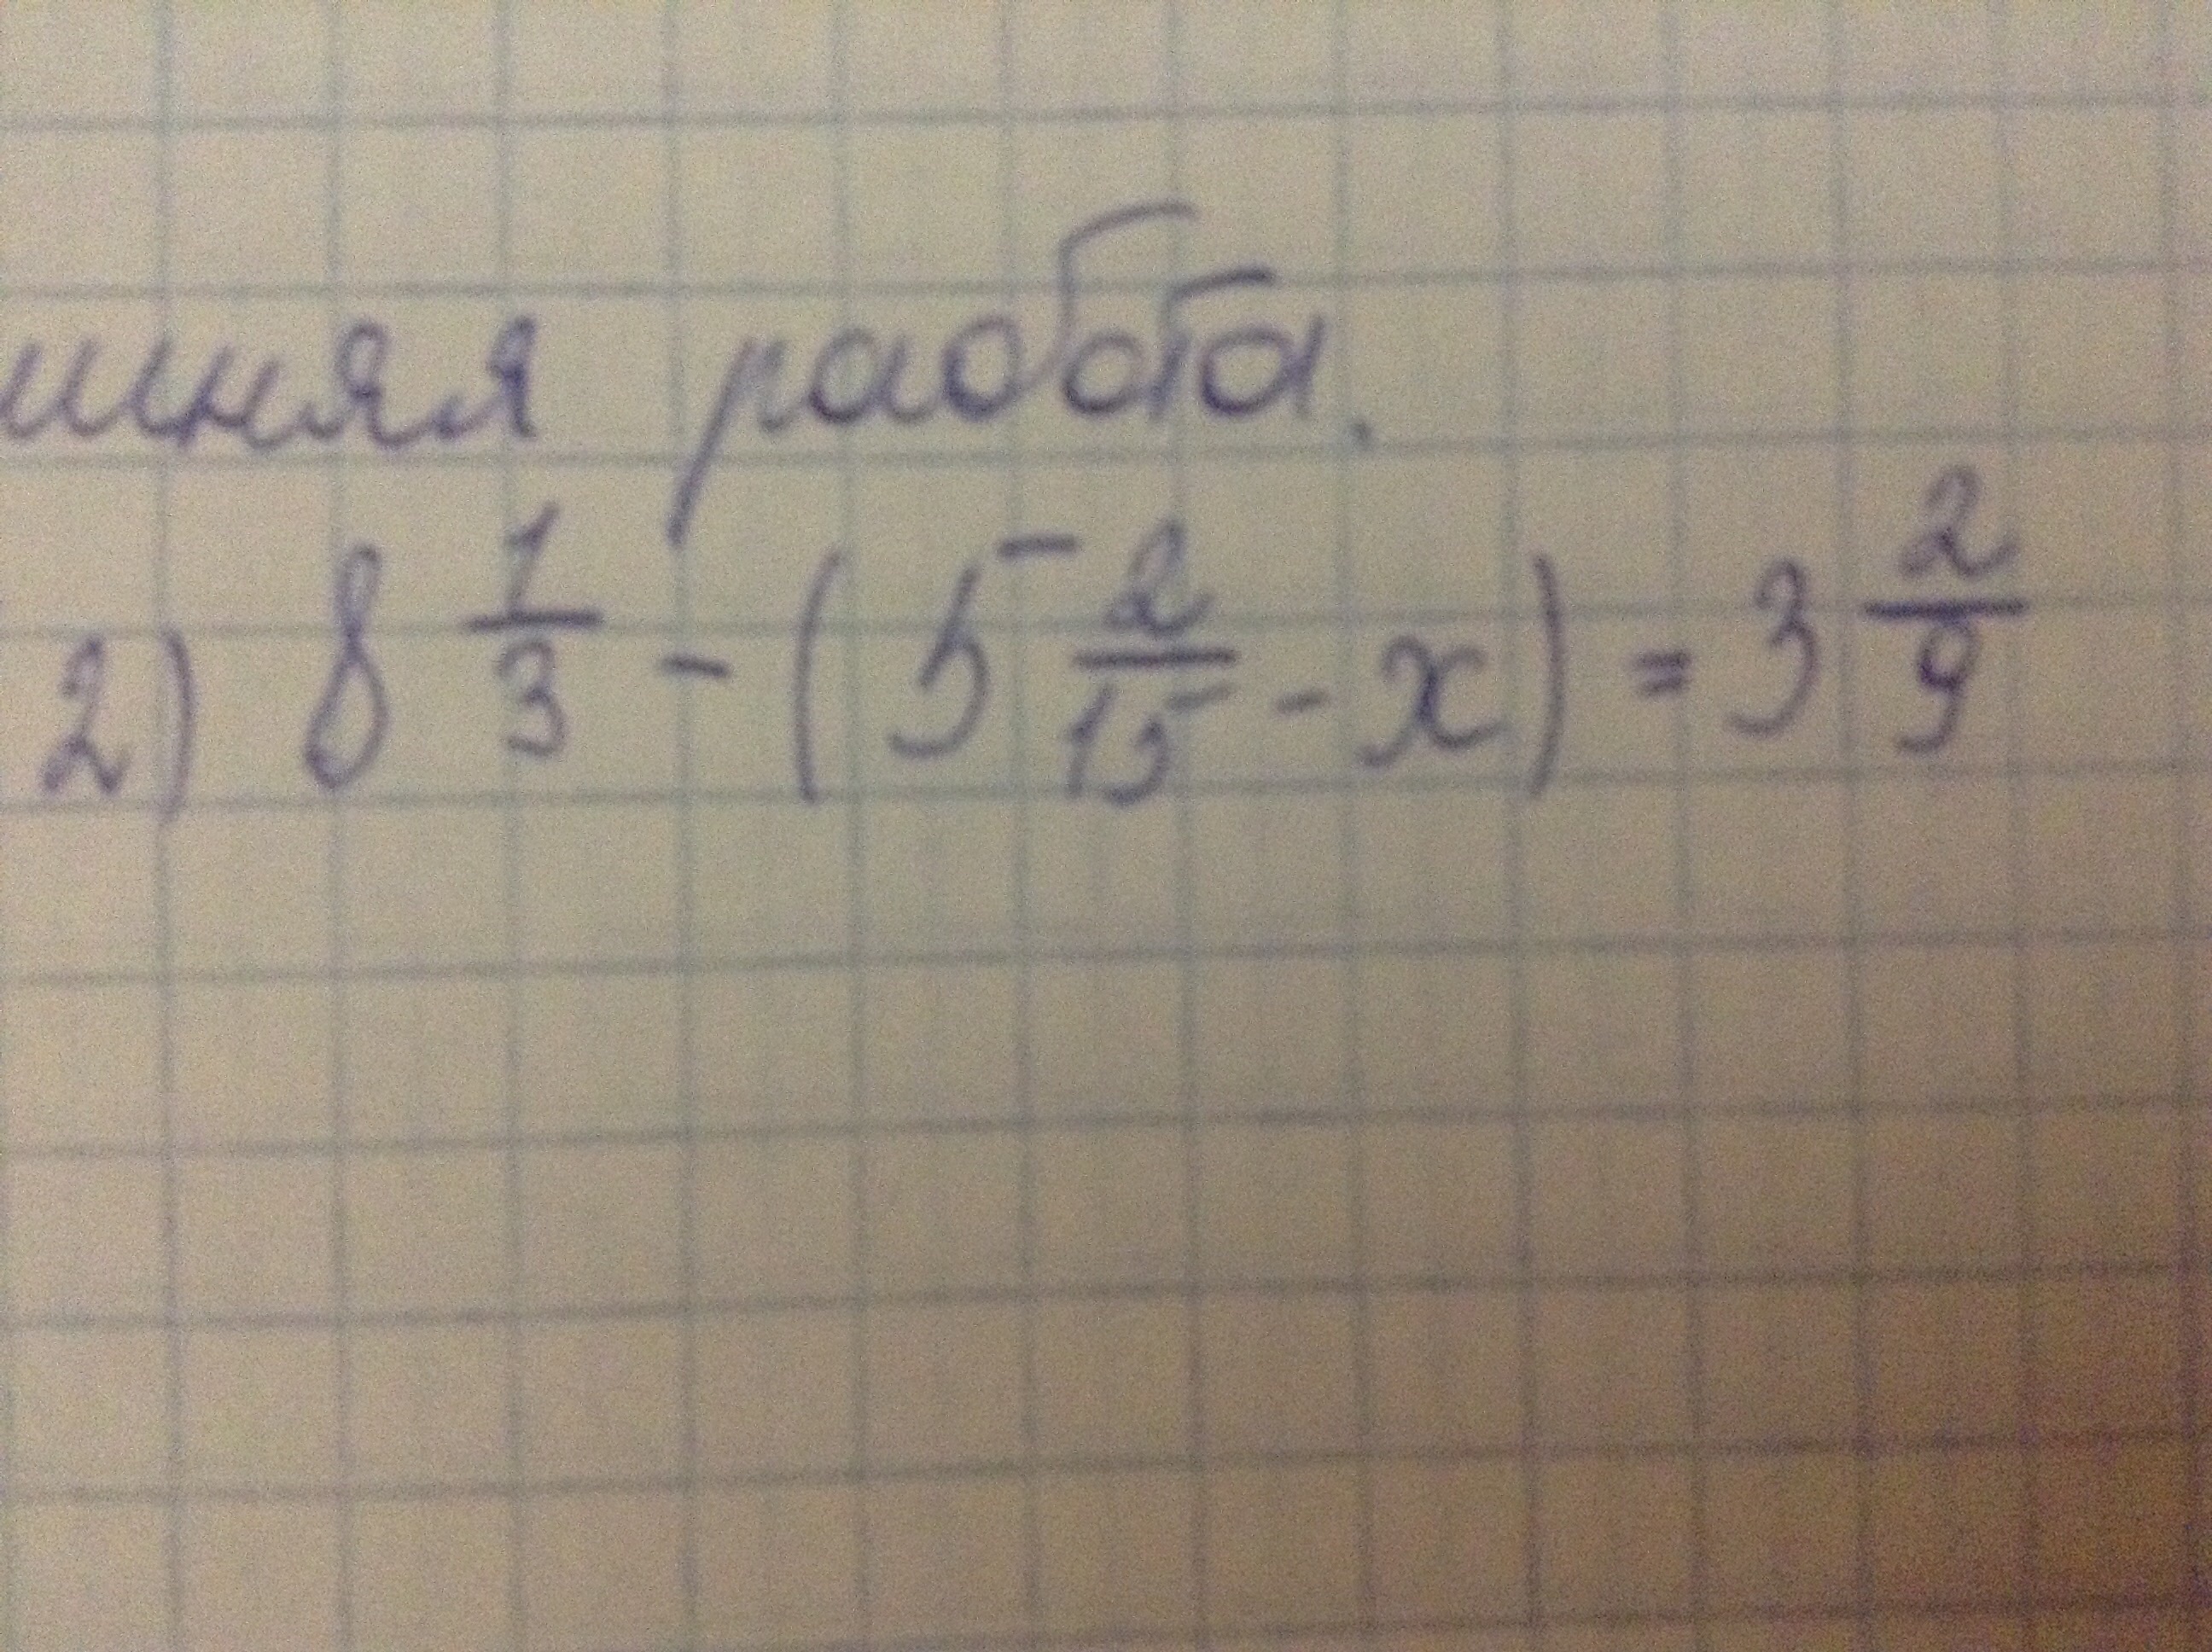 шняя работа.
2) 8 1/3 - (5 2/15 - x) = 3 2/9